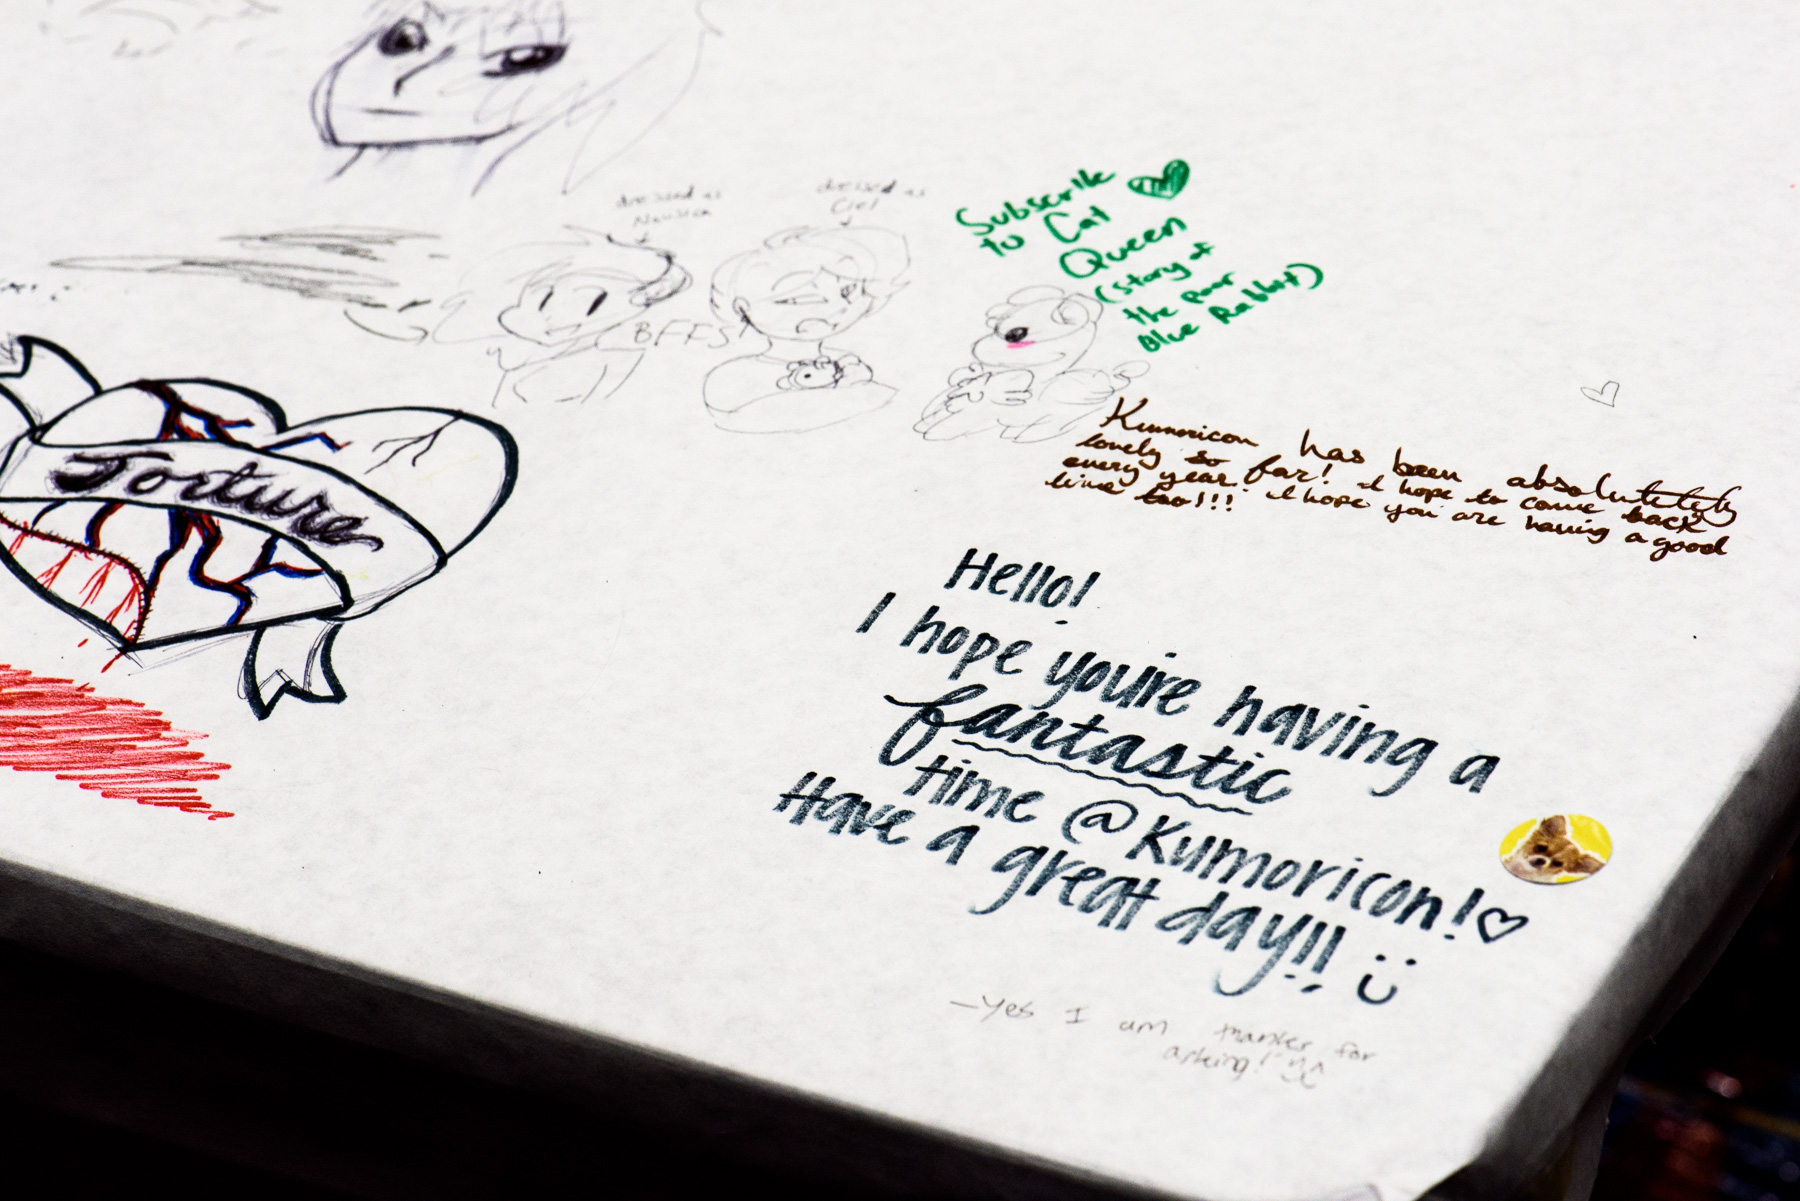 dressed as
dressed as
Ciel
BFFS!
Subscribe
to Cat
Queen
(story of
the poor
Blue Rabbit)
Torture
Kumoricon has been absolutetely
lovely so far! I hope to come back
every year I hope you are having a good
time too!!!
Hello!
I hope you're having a
fantastic
time @Kumoricon!
Have a great day!!
-Yes I am thanks for
asking!